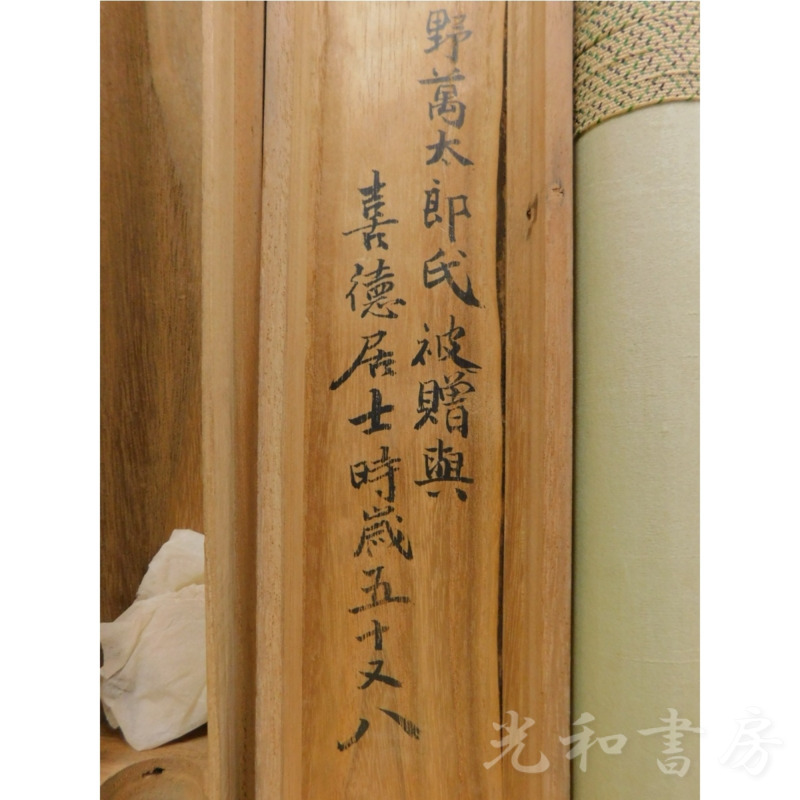 野萬太郎氏被贈與
喜德居士時歳五十又八
光和書房